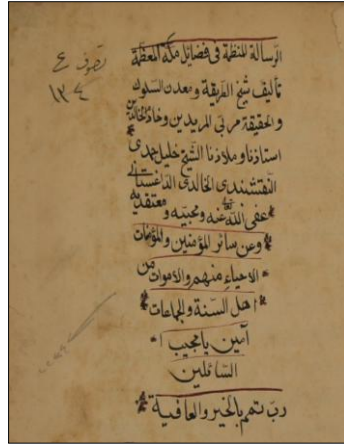 تصوف ع
١٣٤
الرسالة المنظمة فى فضايل مكة المعظمة
تأليف شيخ الطريقة ومعدن السلوك
والحقيقة مربى المريدين وخادم الخالدين
استاذنا وملاذنا الشيخ خليل حمدى
النقشبندى الخالدى الداغستانى
عفى الله عنه ومحبيه ومعتقديه
وعن سائر المؤمنين والمؤمنات
الاحياء منهم والاموات من
اهل السنة والجماعات
آمين يا مجيب
السائلين
رب تمم بالخير والعافية